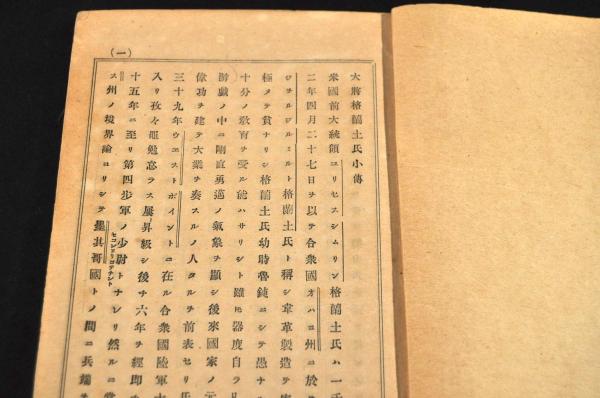 (一)
大將格蘭土氏小傳
米國前大統領ユリセスシムリン格蘭土氏ハ一千
二年四月二十七日ヲ以テ合衆國オハヨ州ニ於
格蘭土氏ト稱シ韋革製造ヲ
極メテ貧ナリシ格蘭土氏幼時魯鈍ニシテ愚ナ
十分ノ敎育ヲ受ル能ハサリシト雖𪜈器度自ラ
遊戯ノ中ニ剛直勇邁ノ氣象ヲ顯シ後來國家ノ元
偉功ヲ建テ大業ヲ奏スルノ人タルヲ前表セリ
三十九年ウエストポイントニ在ル合衆國陸軍
入リ孜々勉怠ラス屢昇級シ後チ六年ヲ經即
十五年ニ至リ第四步軍ノ少尉トナレリ然ルニ
ス州ノ境界論ヨリシテ墨其哥國トノ間ニ兵端